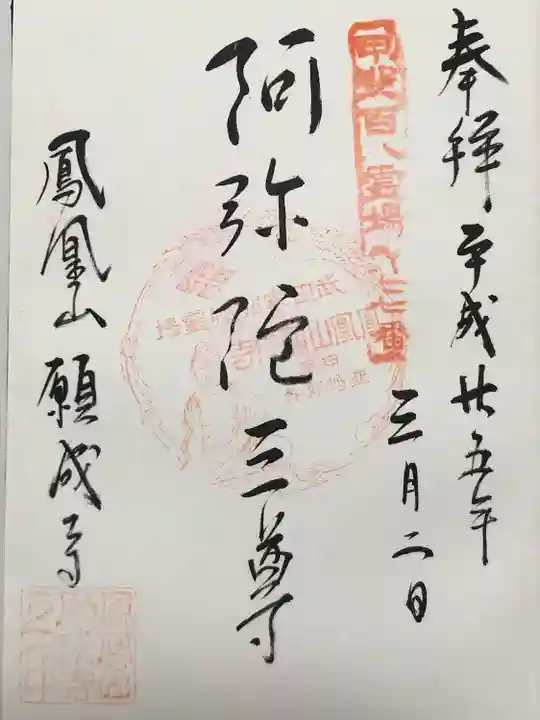 奉拝 平成廿五年
三月二日
甲斐百八霊場
阿弥陀三尊
鳳凰山 願成寺